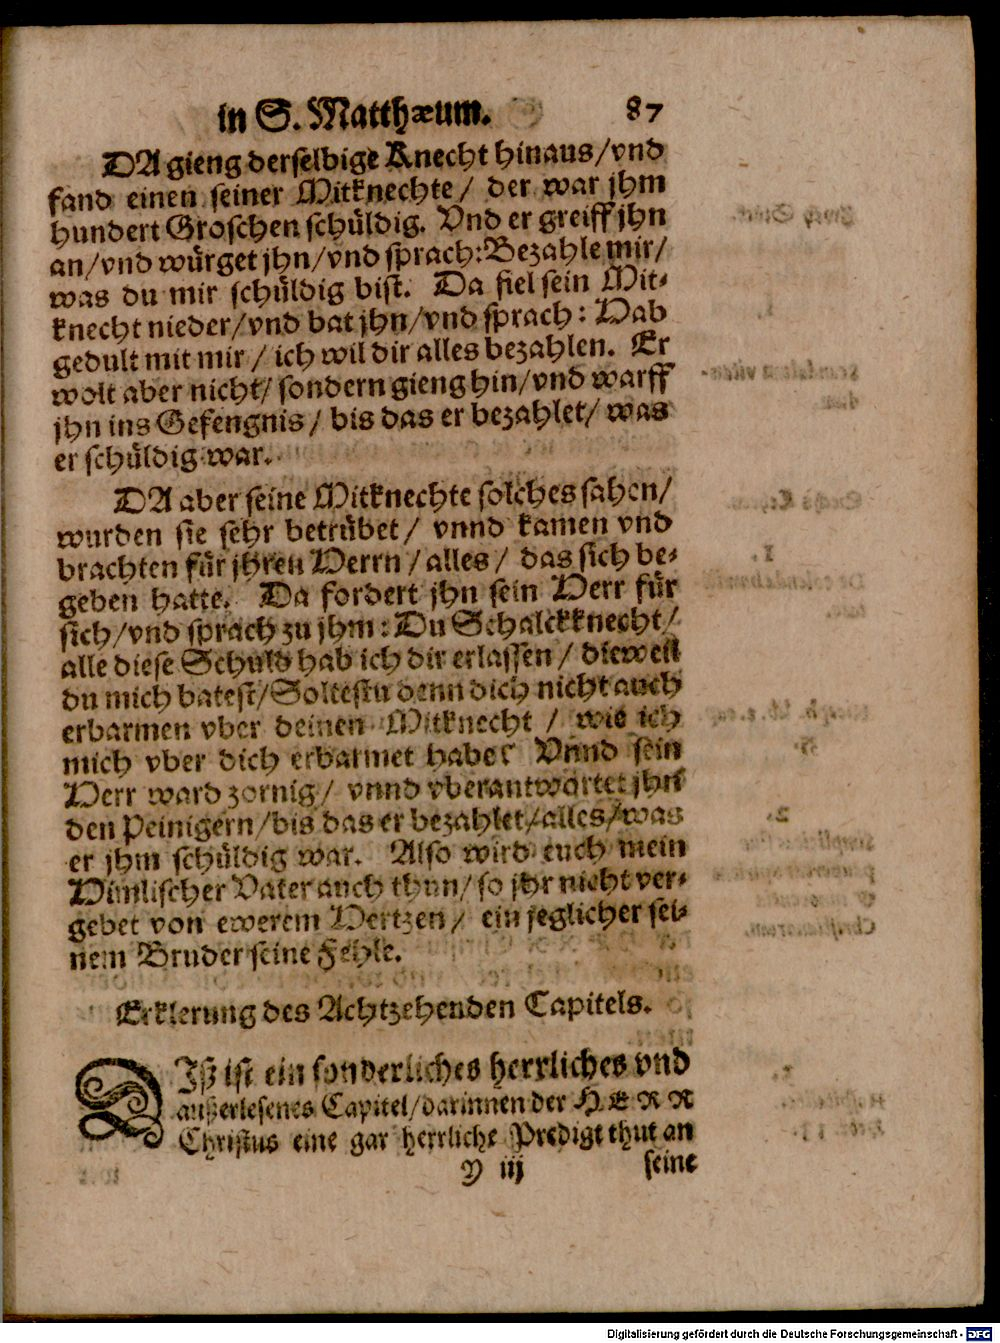 in S. Matthæum. 87
DA gieng derselbige Knecht hinaus/vnd
fand einen seiner Mitknechte/ der war jhm
hundert Groschen schüldig. Vnd er greiff jhn
an/vnd würget jhn/vnd sprach: Bezahle mir/
was du mir schüldig bist. Da fiel sein Mit-
knecht nieder/vnd bat jhn/vnd sprach: Hab
gedult mit mir/ ich wil dir alles bezahlen. Er
wolt aber nicht/ sondern gieng hin/vnd warff
jhn ins Gefengnis/ bis das er bezahlet/ was
er schüldig war.
DA aber seine Mitknechte solches sahen/
wurden sie sehr betrübet/ vnnd kamen vnd
brachten für jhren Herrn/alles/ das sich be-
geben hatte. Da fordert jhn sein Herr für
sich/vnd sprach zu jhm: Du Schalckknecht/
alle diese Schuld hab ich dir erlassen/ dieweil
du mich batest/Soltestu denn dich nicht auch
erbarmen vber deinen Mitknecht/ wie ich
mich vber dich erbarmet habe? Vnnd sein
Herr ward zornig/ vnnd vberantwortet jhn
den Peinigern/bis das er bezahlet/alles/was
er jhm schüldig war. Also wird euch mein
Himlischer Vater auch thun/ so jhr nicht ver-
gebet von ewerem Hertzen/ ein jeglicher sei-
nem Bruder seine Fehle.
Erklerung des Achtzehenden Capitels.
DIß ist ein sonderliches herrliches vnd
außerlesenes Capitel/darinnen der HERR
Christus eine gar herrliche Predigt thut an
Y iij seine
Digitalisierung gefördert durch die Deutsche Forschungsgemeinschaft - DFG